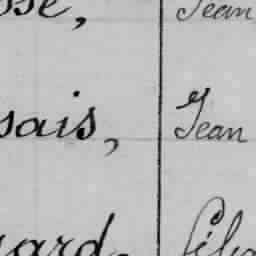 sse, Jean
sais, Jean
uard,